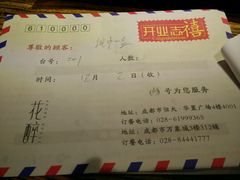 610000
开业志禧
尊敬的顾客：
台号： 人数：
时间： 12月 日（收）
号为您服务
花醉
地址：成都市恒大·华置广场4楼401
订餐电话：028-61999365
成都市万象城3楼312铺
订餐电话：028-84441777